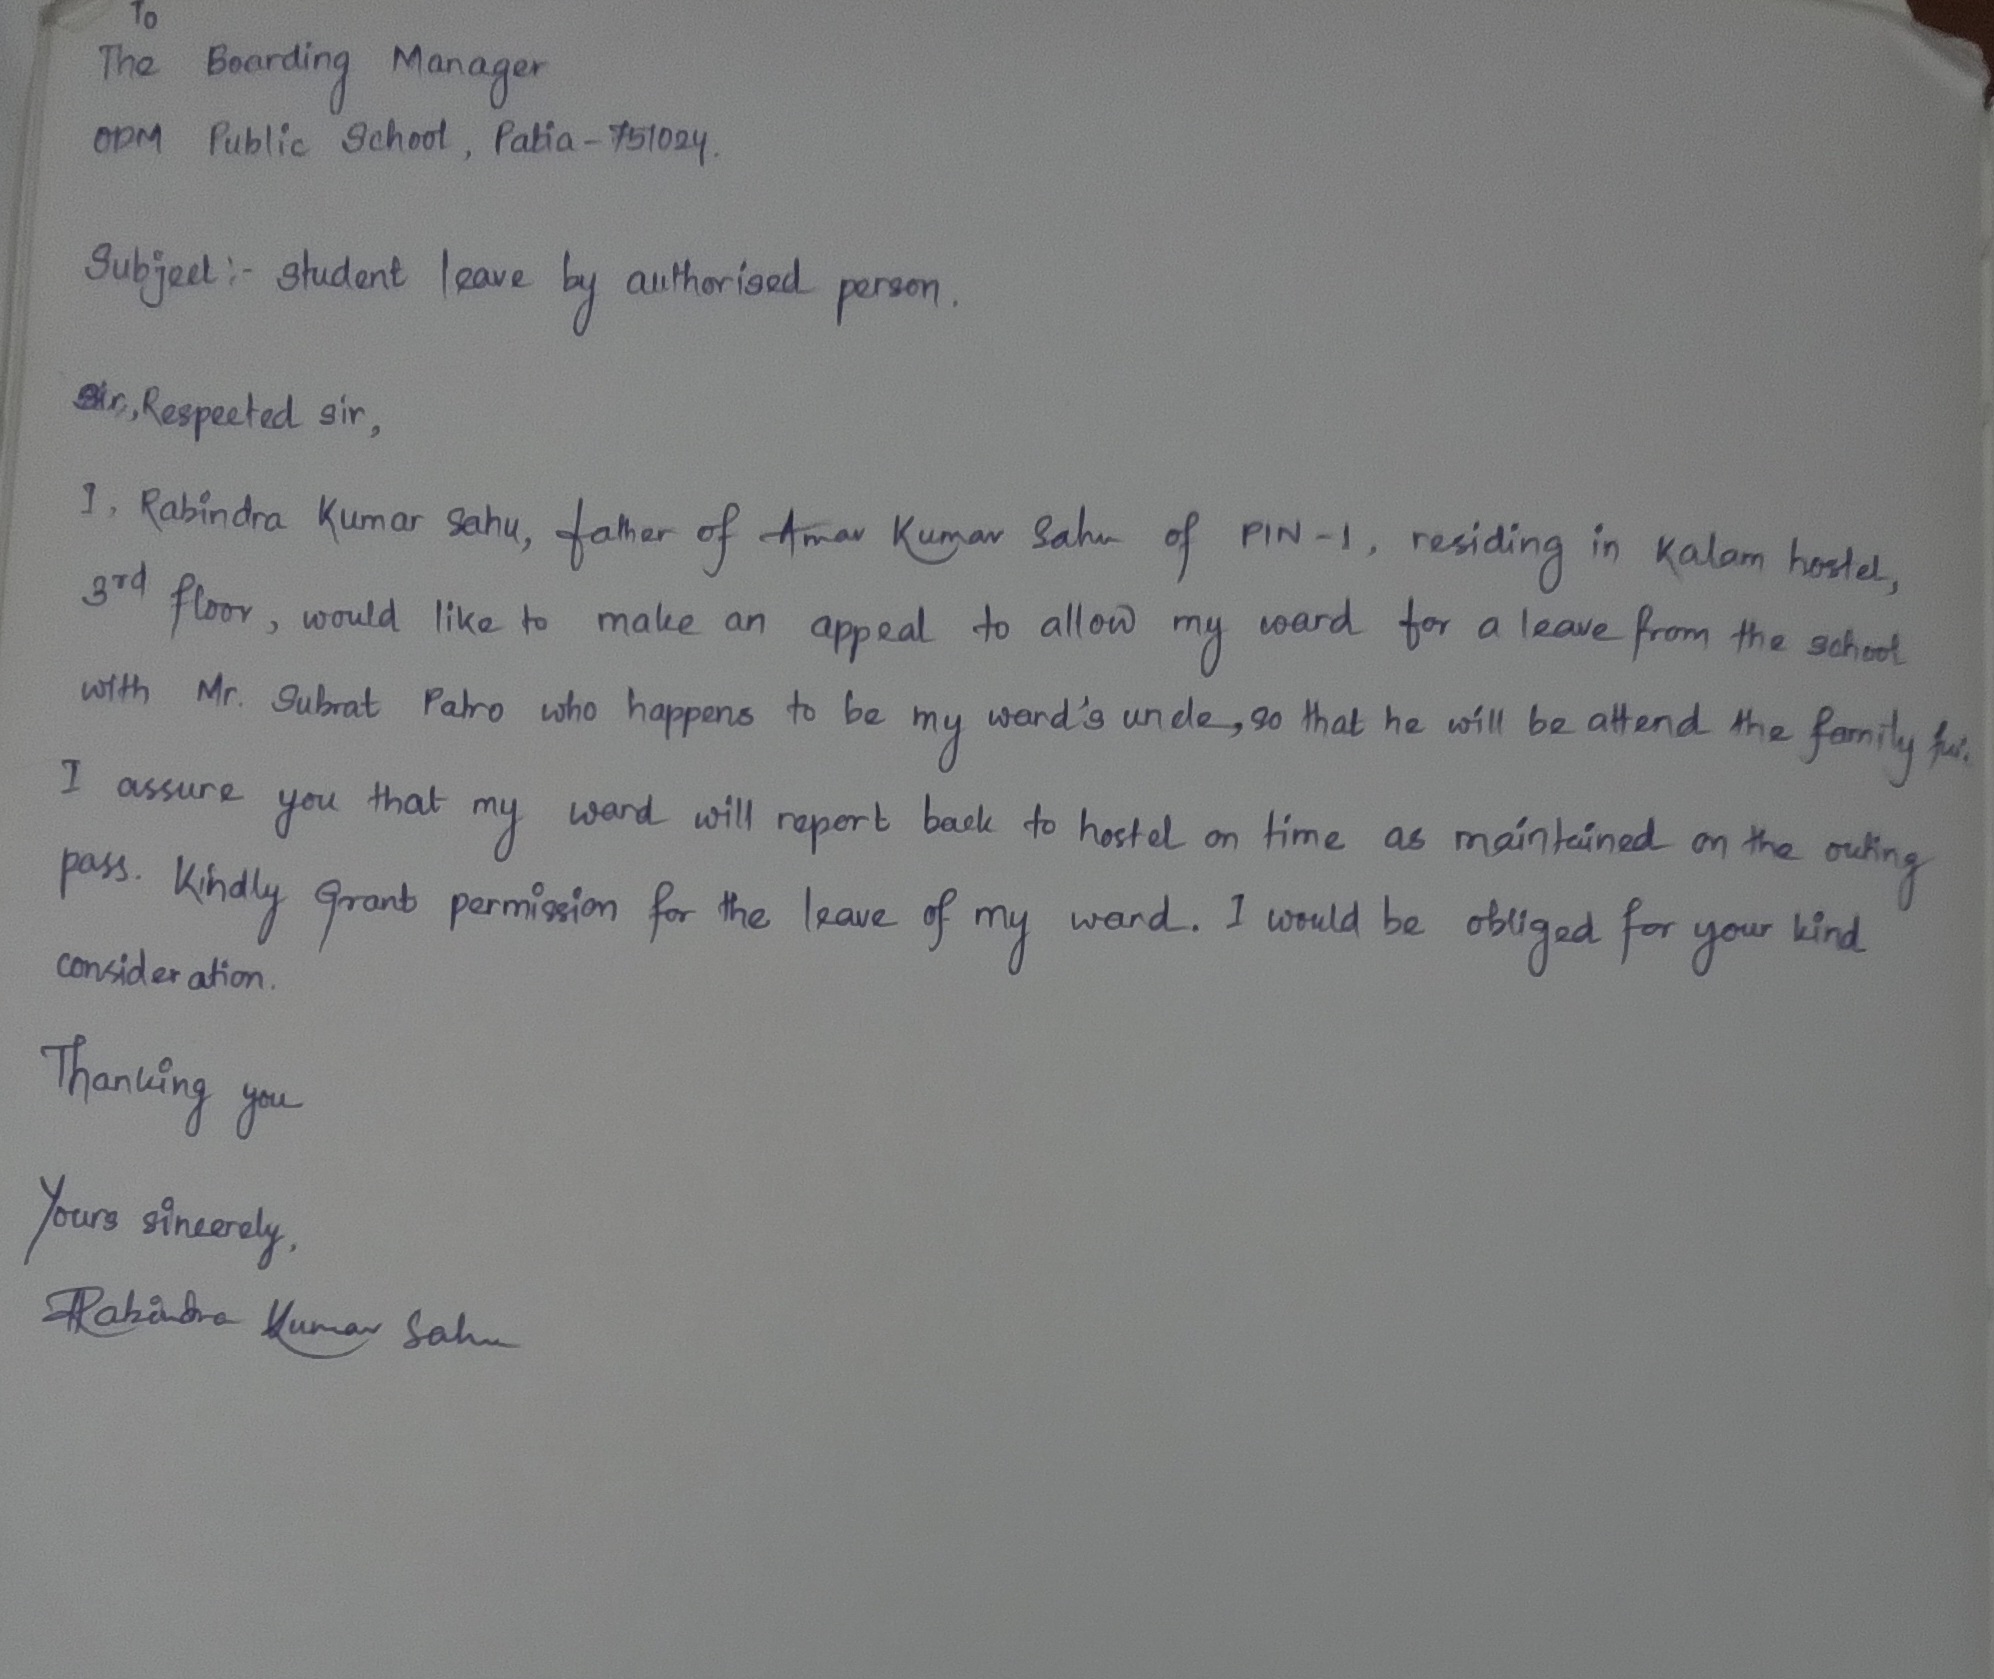 To
The Boarding Manager
ODM Public School, Patia - 751024.
Subject:- student leave by authorised person.
Respected sir,
I, Rabindra Kumar Sahu, father of Amar Kumar Sahu of PIN-1, residing in Kalam hostel,
3rd floor, would like to make an appeal to allow my ward for a leave from the school
with Mr. Subrat Patro who happens to be my ward's uncle, so that he will be attend the family
I assure you that my ward will report back to hostel on time as maintained on the outing
pass. Kindly grant permission for the leave of my ward. I would be obliged for your kind
consideration.
Thanking you
Yours sincerely,
Rabindra Kumar Sahu